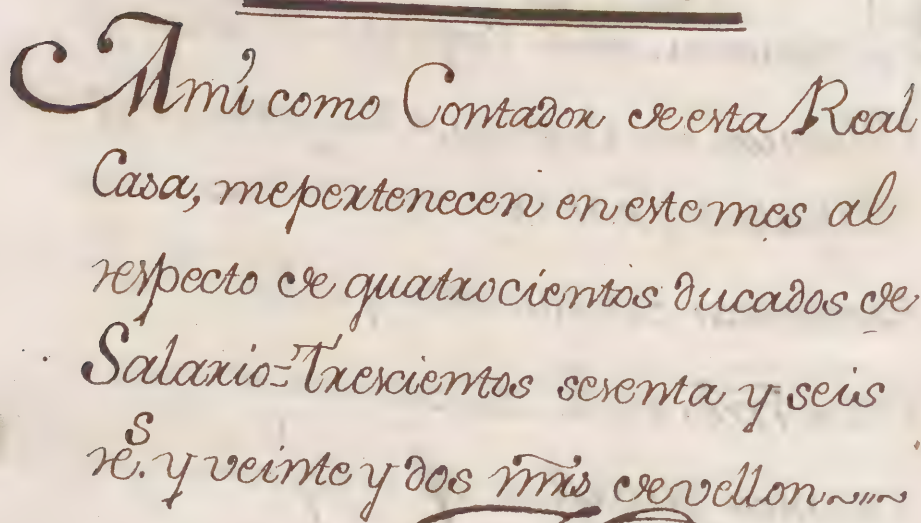 A mi como Contador de esta Real
Casa, me pertenecen en este mes al
respecto de quatrocientos ducados de
Salario= Trescientos sesenta y seis
rs. y veinte y dos mrs de vellon